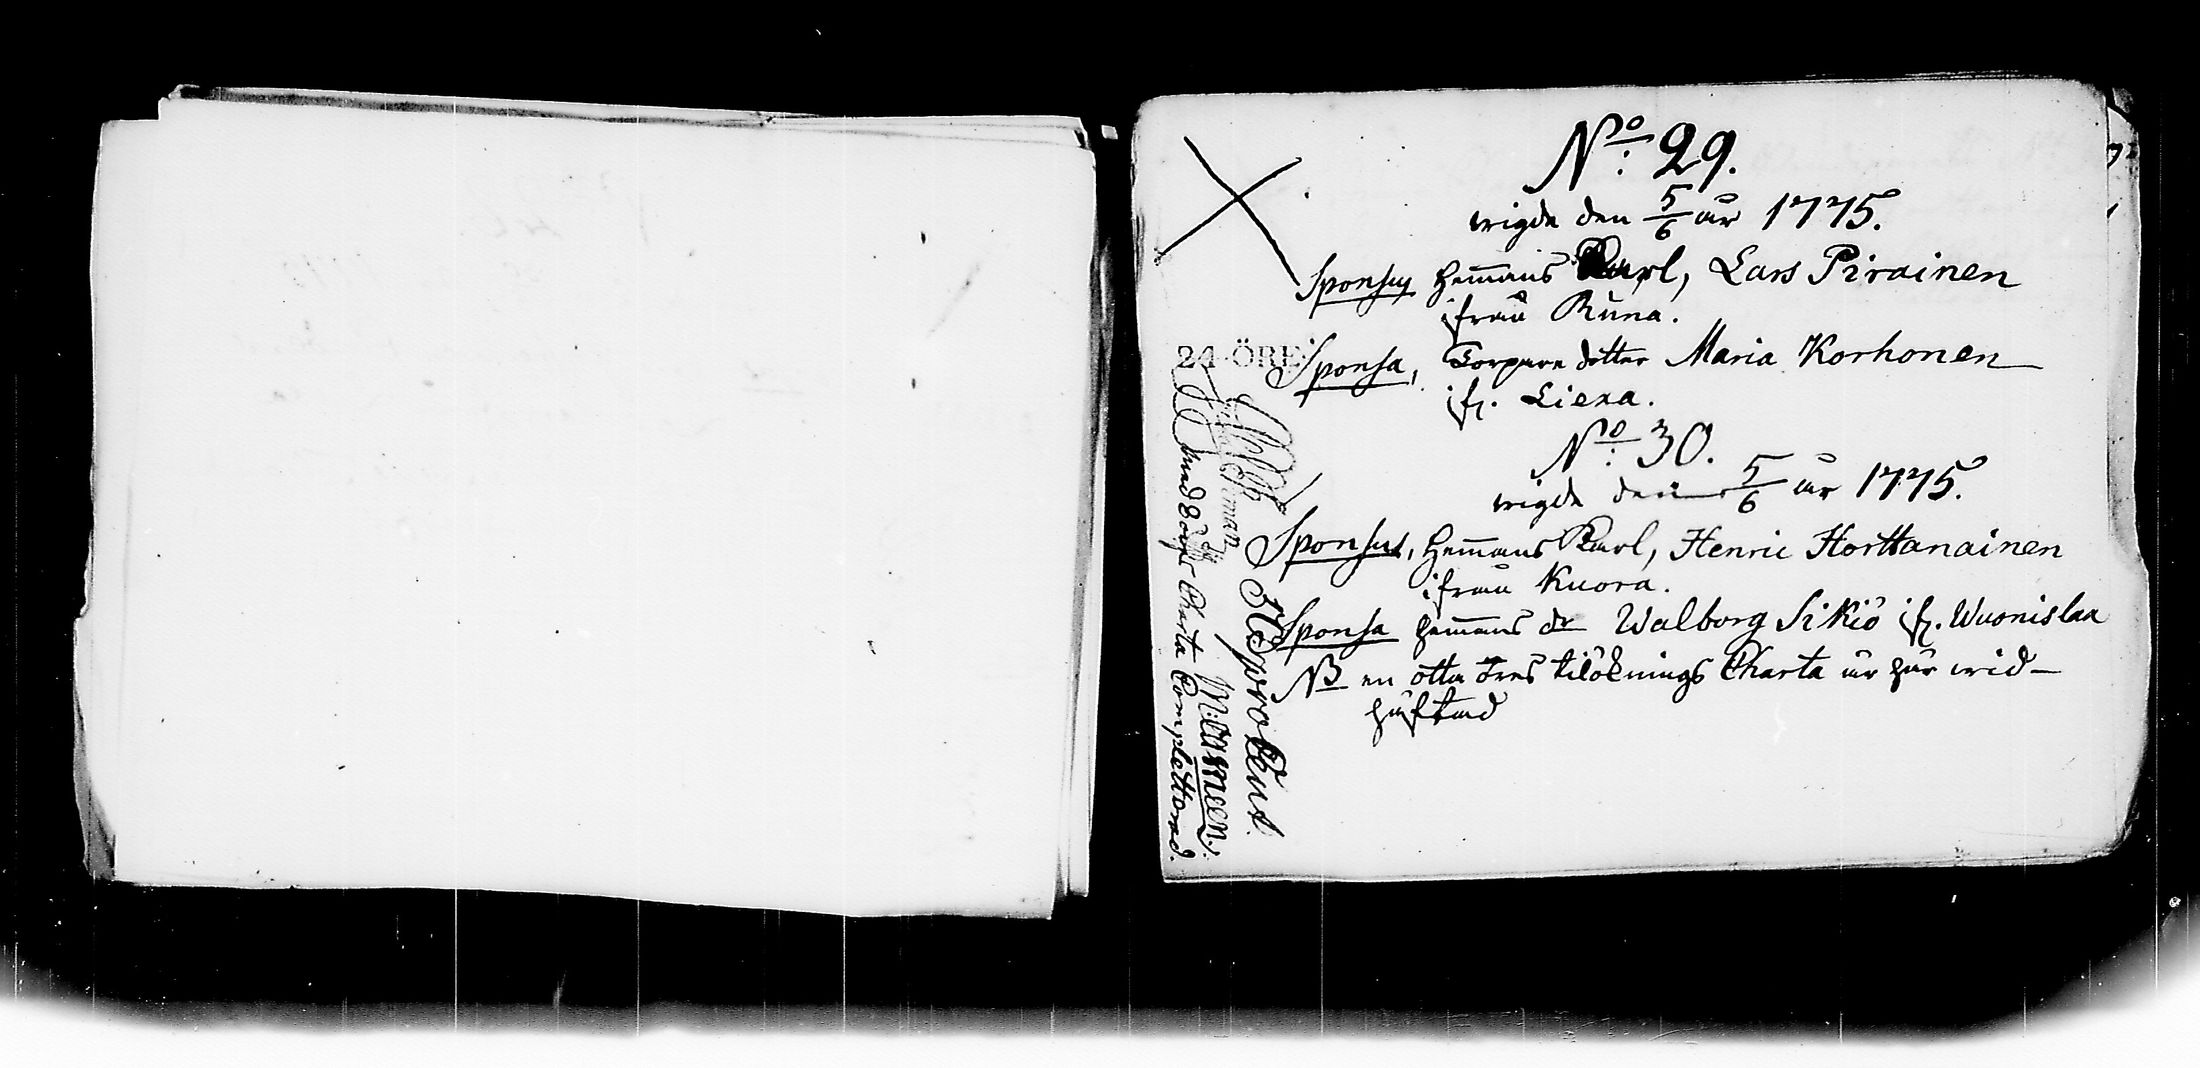 No: 29.
wigde den 5/6 år 1775.
Sponsus Hemans Karl, Lars Pirainen
ifrån Runa.
Sponsa, Torpare dotter Maria Korhonen
ifr. Liexa.
No: 30.
wigde den 5/6 år 1775.
Sponsus, Hemans Karl, Henric Horttanainen
ifrån Kuora.
Sponsa hemans dr Walborg Sikiö ifr. Wuonislax
NB en otta öres tilöknings Charta är här wid-
häftad
24 ÖRE
med 8 öres Charta Completterad.